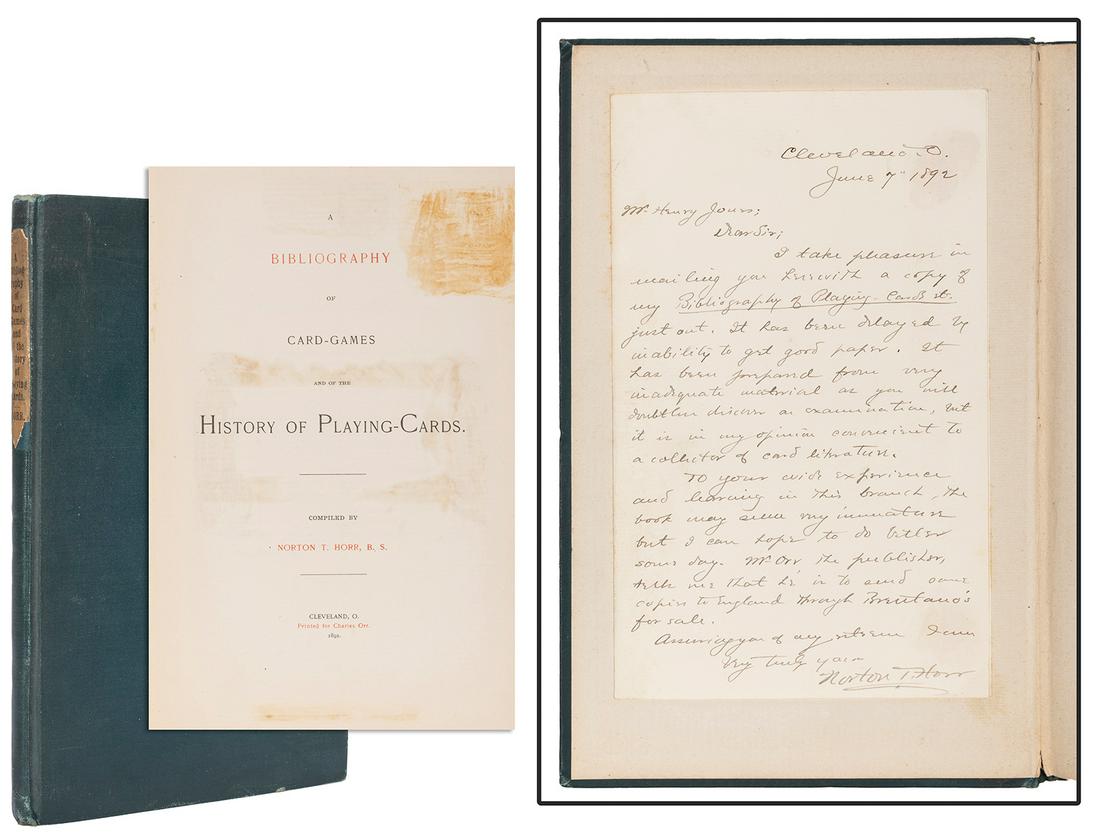 A
Bibliography
of
Card
Games
and
the
History
of
Playing
Cards.
HORR.
A
BIBLIOGRAPHY
OF
CARD-GAMES
AND OF THE
HISTORY OF PLAYING-CARDS.
COMPILED BY
NORTON T. HORR, B. S.
CLEVELAND, O.
Printed for Charles Orr.
1892.
Cleveland. O.
June 7" 1892
Mr. Henry Jones;
Dear Sir;
I take pleasure in
mailing you herewith a copy of
my Bibliography of Playing-Cards etc.
just out. It has been delayed by
inability to get good paper. It
has been prepared from very
inadequate material as you will
doubtless discover on examination, but
it is in my opinion convenient to
a collector of card literature.
To your wide experience
and learning in this branch, the
book may seem very immature
but I can hope to do better
some day. Mr. Orr, the publisher,
tells me that he is to send some
copies to England through Brentano's
for sale.
Assuring you of my esteem I am
Very truly yours
Norton T. Horr